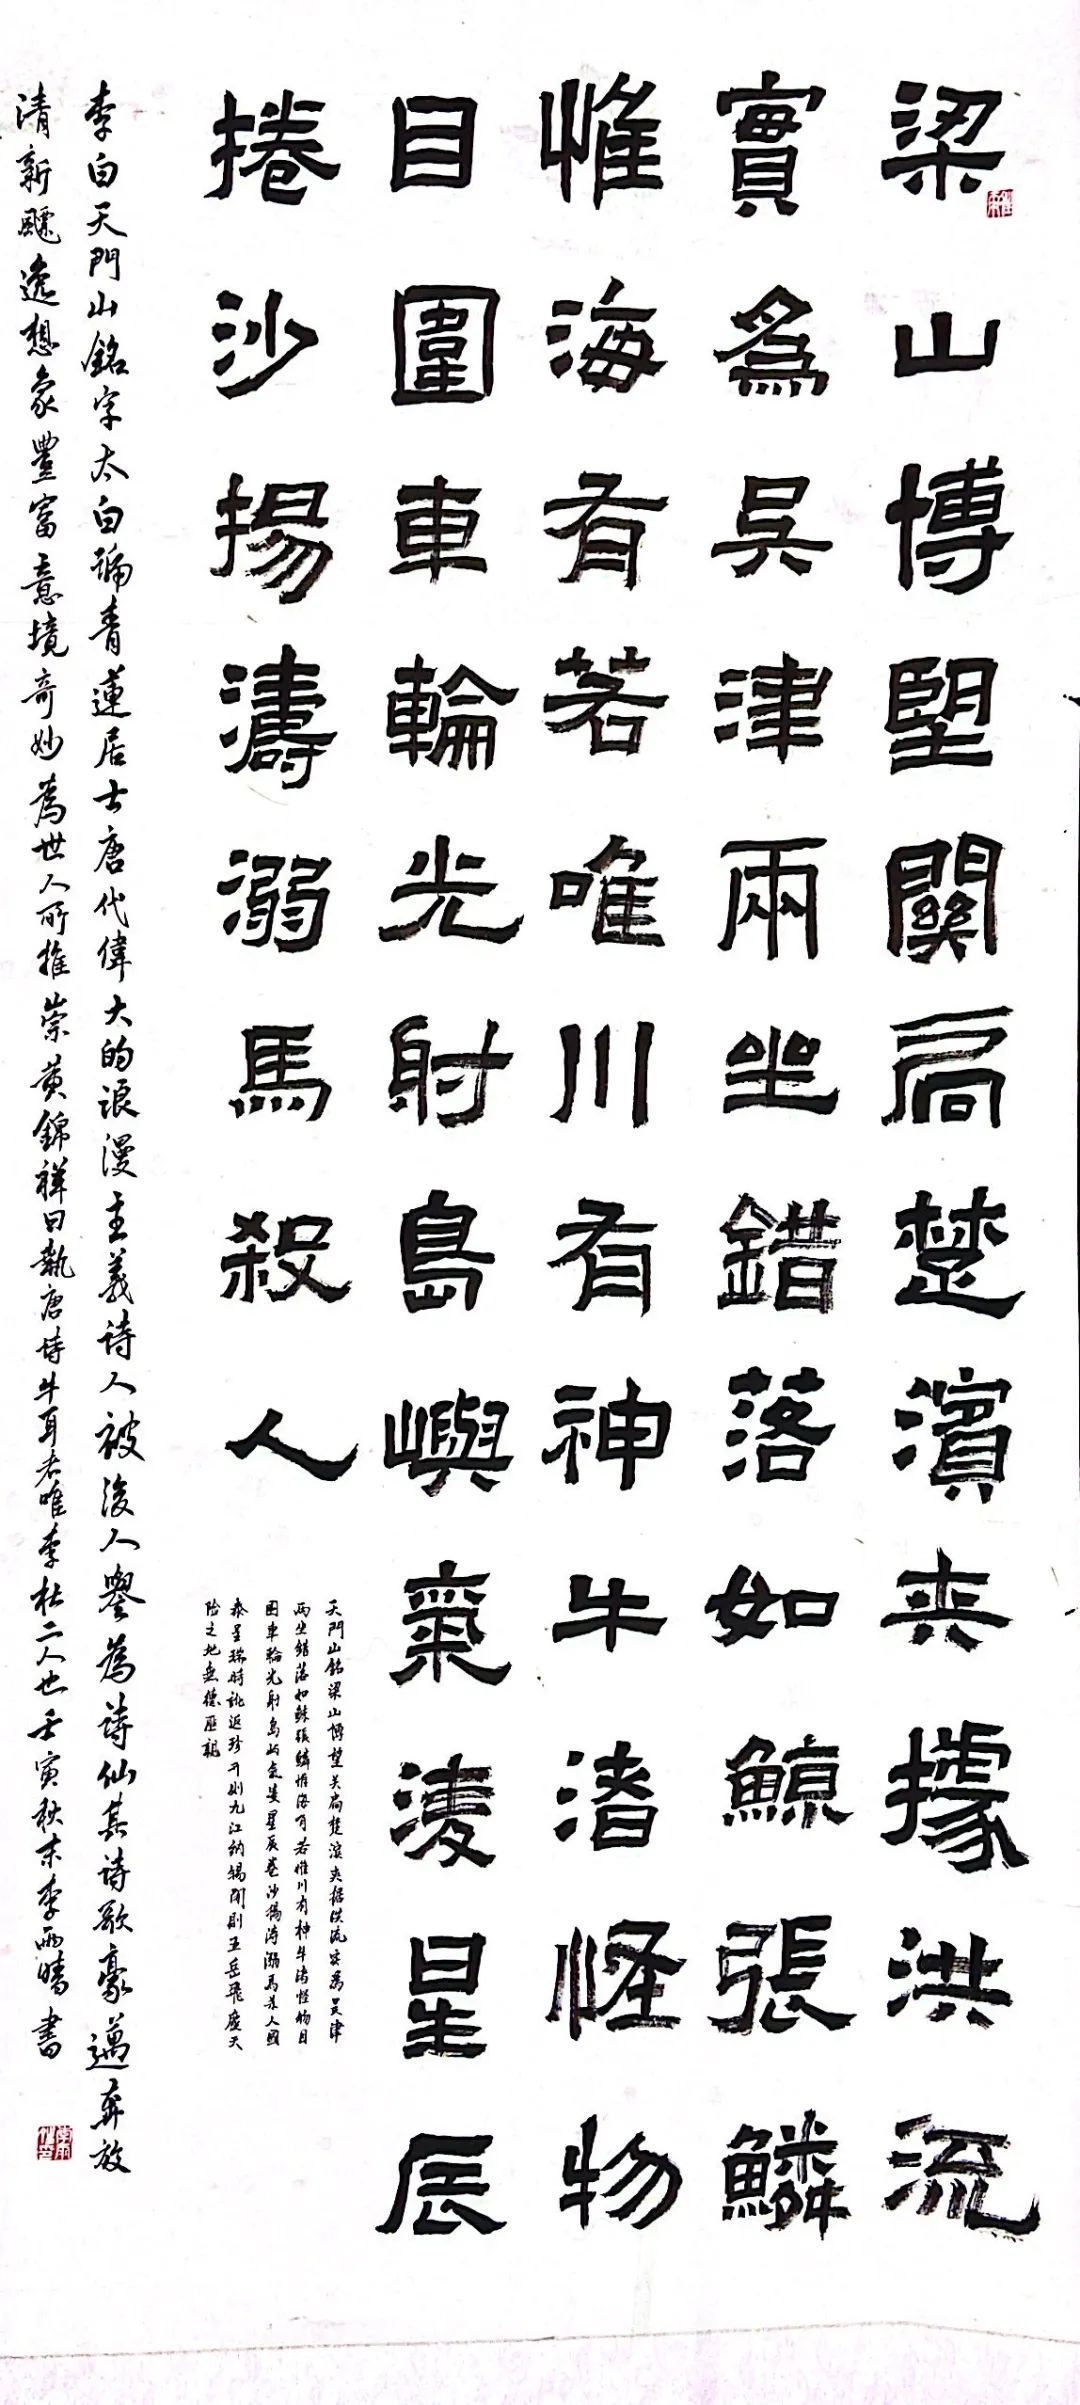 梁山博望關扃楚濱夾據洪流
實爲吳津兩坐錯落如鯨張鱗
惟海有若唯川有神牛渚怪物
目圍車輪光射島嶼氣凌星辰
捲沙揚濤溺馬殺人
天門山銘梁山博望关扃楚濱夾据洪流实爲吴津
两坐錯落如鯨張鱗惟海有若惟川有神牛渚怪物目
囲車輪光射島屿气凌星辰卷沙揚涛溺馬杀人國
泰呈瑞時訛返珍开则九江納锡閉則五岳飛塵天
险之地無德匪親
李白天門山銘字太白號青蓮居士唐代偉大的浪漫主義詩人被後人譽為詩仙其詩歌豪邁奔放
清新飄逸想象豐富意境奇妙為世人所推崇黄錦祥曰執唐詩牛耳者唯李杜二人也壬寅秋末李雨晴書